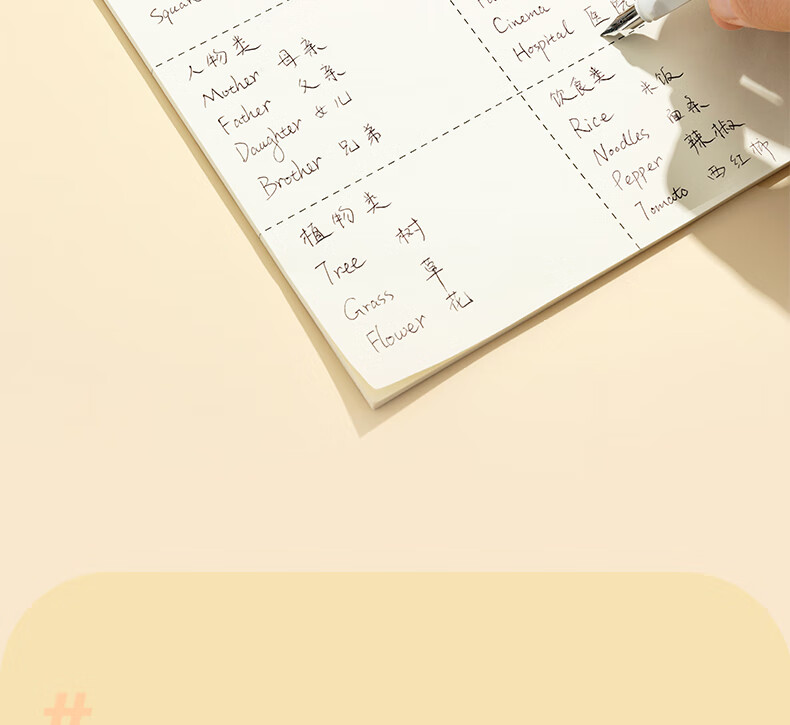 人物类
Mother 母亲
Father 父亲
Daughter 女儿
Brother 兄弟
植物类
Tree 树
Grass 草
Flower 花
Cinema
Hospital 医院
饮食类
Rice 米饭
Noodles 面条
Pepper 辣椒
Tomato 西红柿
#